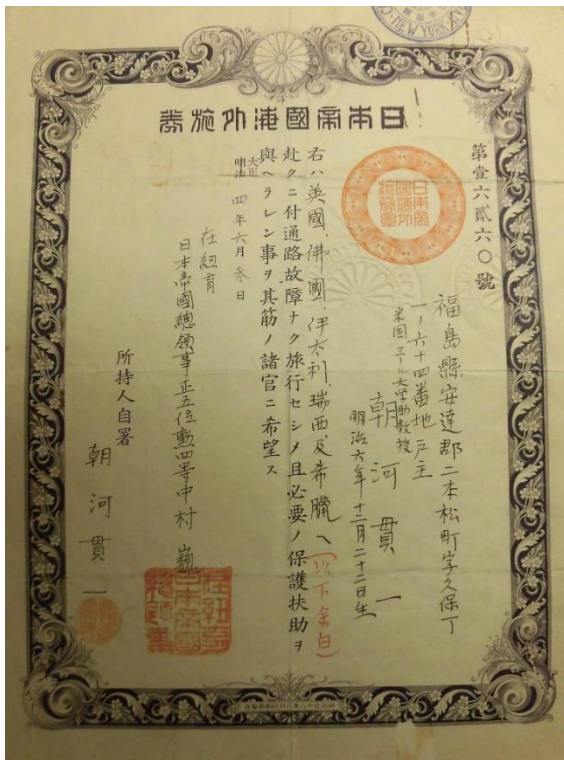 NEW YORK
日本帝國海外旅券
第壹六貳六〇號
日本帝國海外旅券章
福島縣安達郡二本松町字久保丁
一ノ六十四番地戸主
米国エール大学助教授
朝河貫一
明治六年十二月二十二日生
右ハ英國、佛國、伊太利、瑞西及希臘ヘ(以下余白)
赴クニ付通路故障ナク旅行セシメ且必要ノ保護扶助ヲ
與ヘラレン事ヲ其筋ノ諸官ニ希望ス
大正
明治
四年六月参日
在紐育
日本帝國總領事正五位勲四等中村巍
在紐育日本帝國總領事
所持人自署
朝河貫一